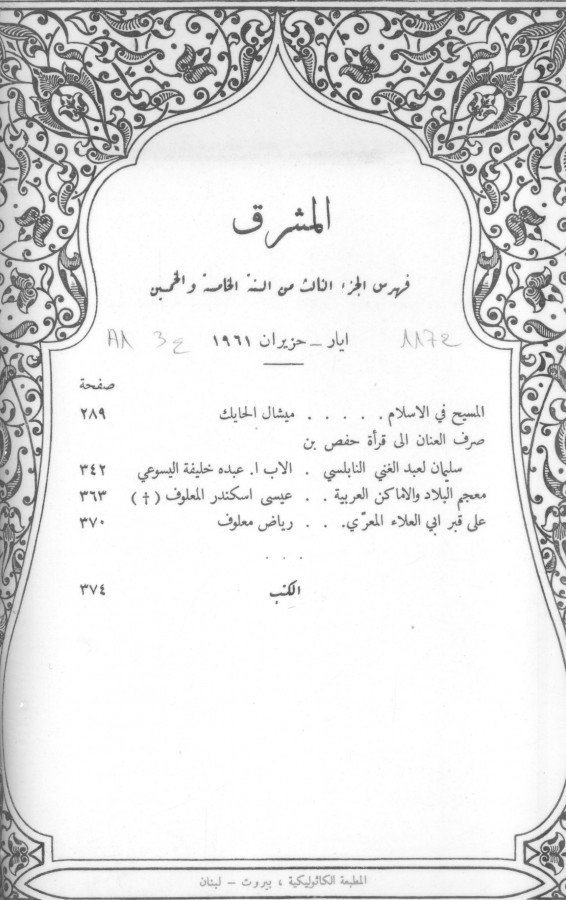 المشرق
فهرس الجزء الثالث من السنة الخامسة والخمسين
ايار - حزيران ١٩٦١
صفحة
المسيح في الاسلام . . . . . ميشال الحايك ٢٨٩
صرف العنان الى قرأة حفص بن
سليمان لعبد الغني النابلسي . الاب ا. عبده خليفة اليسوعي ٣٤٢
معجم البلاد والاماكن العربية . . عيسى اسكندر المعلوف (†) ٣٦٣
على قبر ابي العلاء المعرّي . . . رياض معلوف ٣٧٠
. . .
الكتب ٣٧٤
المطبعة الكاثوليكية ، بيروت - لبنان